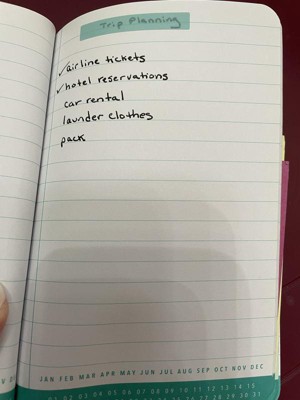 Trip Planning
✓airline tickets
✓hotel reservations
car rental
launder clothes
pack
JAN FEB MAR APR MAY JUN JUL AUG SEP OCT NOV DEC
01 02 03 04 05 06 07 08 09 10 11 12 13 14 15
16 17 18 19 20 21 22 23 24 25 26 27 28 29 30 31